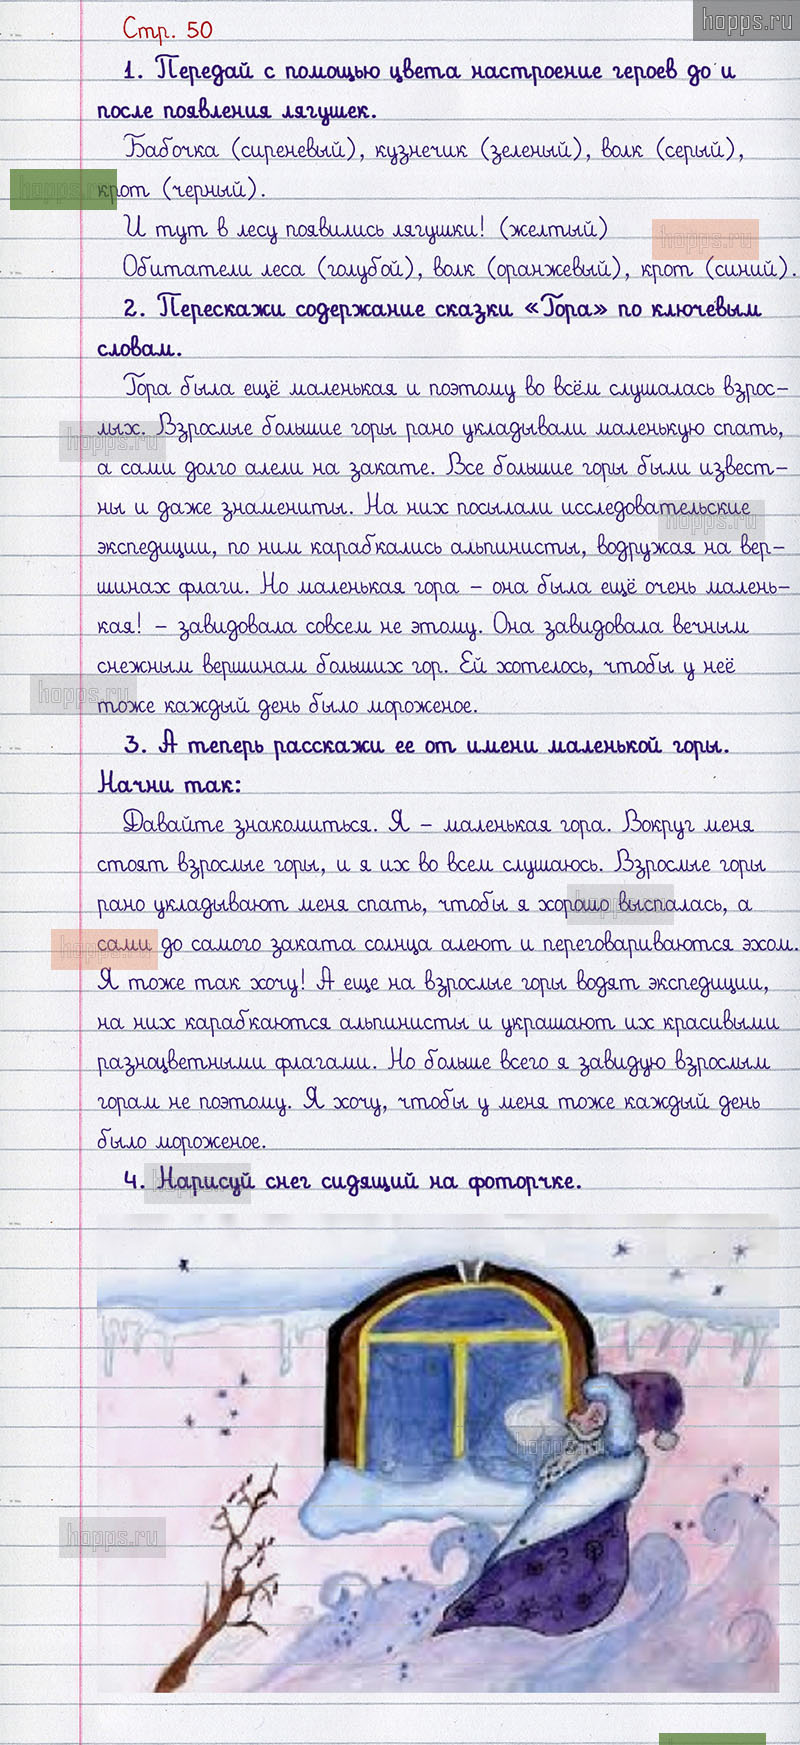 hopps.ru
Стр. 50
1. Передай с помощью цвета настроение героев до и
после появления лягушек.
Бабочка (сиреневый), кузнечик (зеленый), волк (серый),
крот (черный).
И тут в лесу появились лягушки! (желтый)
Обитатели леса (голубой), волк (оранжевый), крот (синий).
2. Перескажи содержание сказки «Гора» по ключевым
словам.
Гора была ещё маленькая и поэтому во всём слушалась взрос-
лых. Взрослые большие горы рано укладывали маленькую спать,
а сами долго алели на закате. Все большие горы были извест-
ны и даже знамениты. На них посылали исследовательские
экспедиции, по ним карабкались альпинисты, водружая на вер-
шинах флаги. Но маленькая гора – она была ещё очень малень-
кая! – завидовала совсем не этому. Она завидовала вечным
снежным вершинам больших гор. Ей хотелось, чтобы у неё
тоже каждый день было мороженое.
3. А теперь расскажи ее от имени маленькой горы.
Начни так:
Давайте знакомиться. Я – маленькая гора. Вокруг меня
стоят взрослые горы, и я их во всем слушаюсь. Взрослые горы
рано укладывают меня спать, чтобы я хорошо выспалась, а
сами до самого заката солнца алеют и переговариваются эхом.
Я тоже так хочу! А еще на взрослые горы водят экспедиции,
на них карабкаются альпинисты и украшают их красивыми
разноцветными флагами. Но больше всего я завидую взрослым
горам не поэтому. Я хочу, чтобы у меня тоже каждый день
было мороженое.
4. Нарисуй снег сидящий на фоторчке.